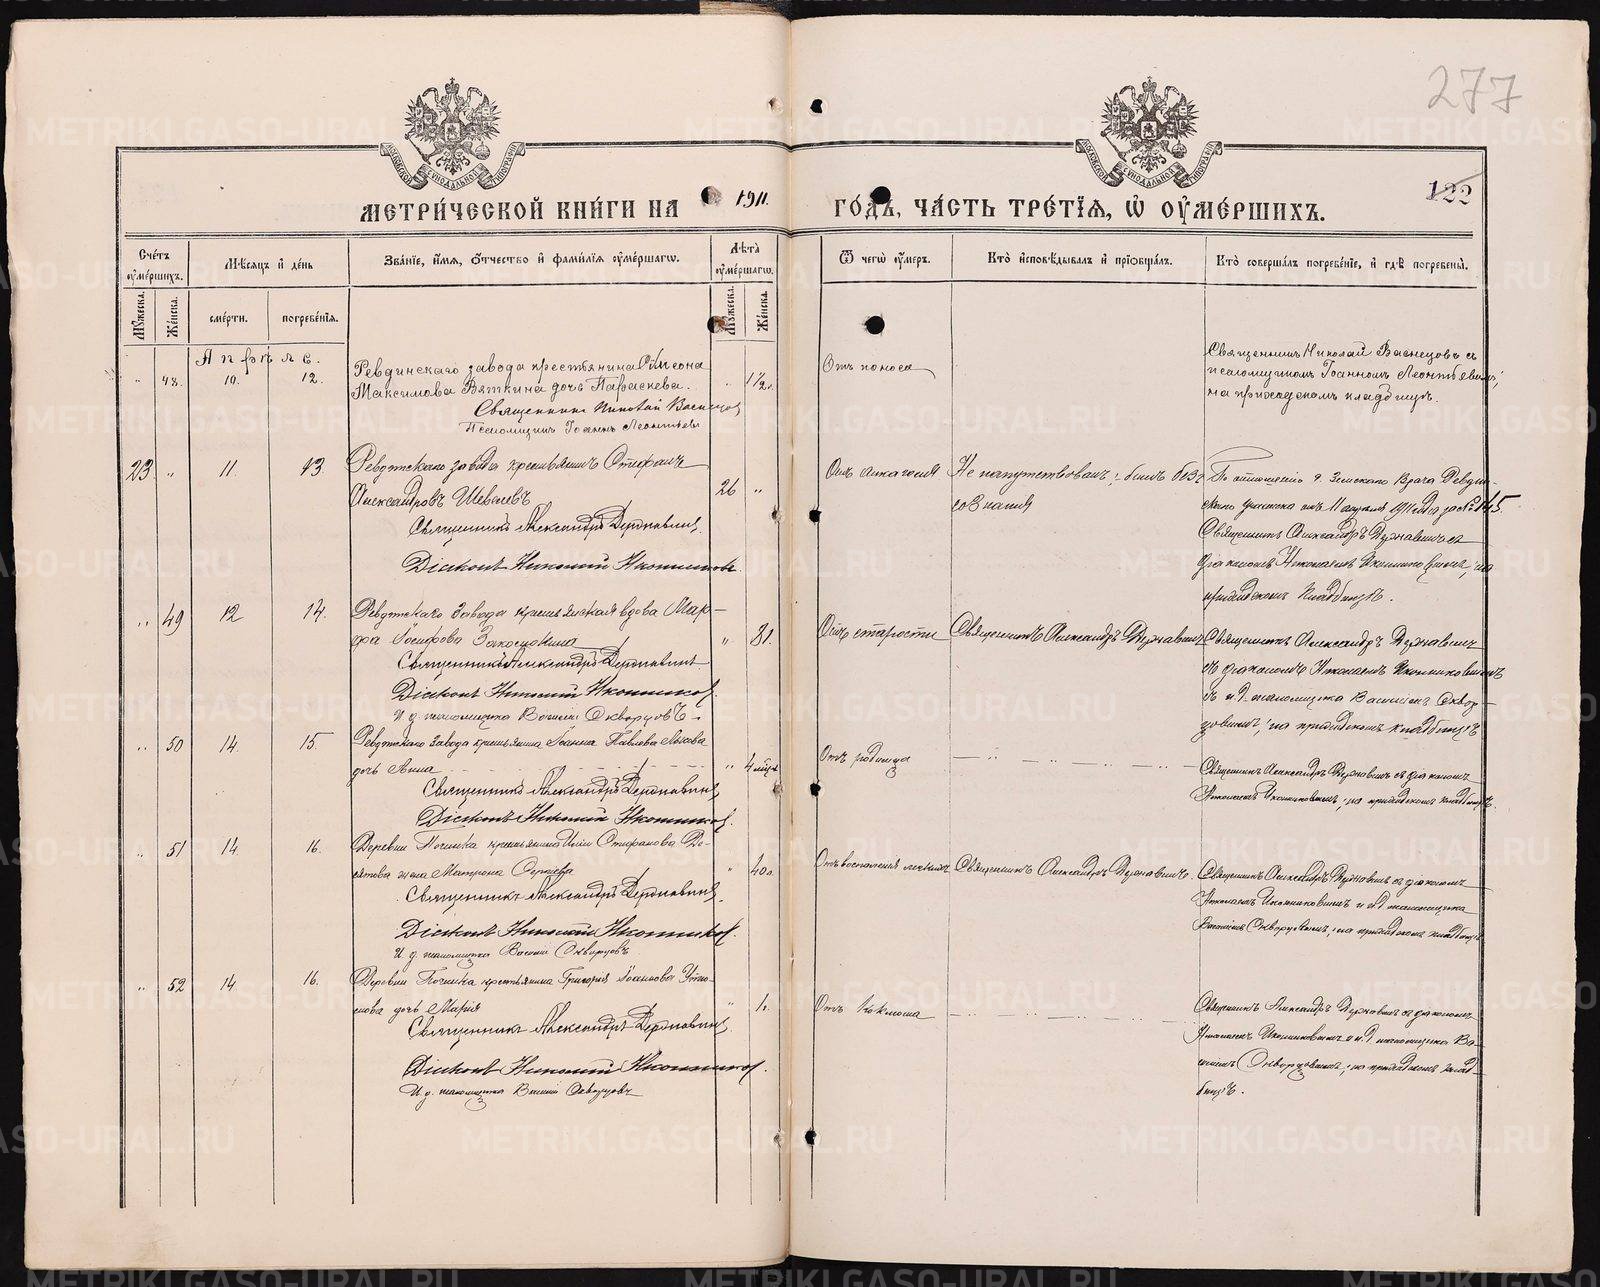 277
122
МЕТРИ́ЧЕСКОЙ КНИ́ГИ НА 1911. ГО́ДЪ, ЧА́СТЬ ТРЕ́ТІѦ, Ѿ ОУМЕ́РШИХЪ.
Сче́тъ оуме́ршихъ.
Мѣ́сѧцъ и҆ де́нь
Зва́нїе, и҆́мѧ, ѻ҆́тчество и҆ фамилїѧ оуме́ршагѡ.
Лѣ́та оуме́ршагѡ.
Ѿ чегѡ̀ оу҆́меръ.
Кто̀ и҆сповѣ́дывалъ и҆ прїѡбща́лъ.
Кто̀ соверша́лъ погребе́нїе, и҆ гдѣ̀ погребены̀.
Мꙋ́жеска.
Же́нска.
сме́рти.
погребе́нїѧ.
Мꙋ́жеска.
Же́нска.
Апрѣль.
48. 10. 12.
Ревдинскаго завода крестьянина Симеона
Максимова Вяткина дочь Параскева.
Священникъ Николай Васнецов
Псаломщикъ Іоаннъ Леонтьев
1½ г.
Отъ поноса
Священникъ Николай Васнецовъ с
псаломщикомъ Іоанномъ Леонтьевымъ,
на приходскомъ кладбищѣ.
23. " 11. 13.
Ревдинскаго завода крестьянинъ Стефанъ
Александровъ Шевалевъ
Священникъ Александръ Державинъ
Діаконъ Николай Иконниковъ
26 "
Отъ алкоголя
Не напутствованъ; былъ безъ
сознанія
По отношенію г. Земскаго Врача Ревдин-
скаго участка отъ 11 апрѣля 1911 года за № 145.
Священникъ Александръ Державинъ съ
діакономъ Николаемъ Иконниковымъ, на
приходскомъ кладбищѣ.
" 49 12 14.
Ревдинскаго завода крестьянская вдова Мар-
фа Іосифова
Священникъ Александръ Державинъ
Діаконъ Николай Иконников.
И. д. псаломщика Василій Скворцовъ.
" 81.
Отъ старости
Священникъ Александръ Державинъ
Священникъ Александръ Державинъ
съ діакономъ Николаемъ Иконниковымъ
и и. д. псаломщика Василіемъ Сквор-
цовымъ, на приходскомъ кладбищѣ
" 50 14 15.
Ревдинскаго завода крестьянина Іоанна Павлова
дочь Анна
Священникъ Александръ Державинъ
Діаконъ Николай Иконников.
" 4 мѣс.
Отъ родимца
Священникъ Александръ Державинъ съ діакономъ
Николаемъ Иконниковымъ, на приходскомъ кладбищѣ.
" 51 14 16.
Деревни Починка крестьянина Стефанова
жена Матрона Сергіева
Священникъ Александръ Державинъ
Діаконъ Николай Иконников.
И. д. псаломщика Василій Скворцовъ
" 40 л.
Отъ воспаленія легкихъ
Священникъ Александръ Державинъ.
Священникъ Александръ Державинъ съ діакономъ
Николаемъ Иконниковымъ и и. д. псаломщика
Василіемъ Скворцовымъ, на приходскомъ кладбищѣ
" 52 14 16.
Деревни Починка крестьянина Григорія Іоаннова
дочь Марія
Священникъ Александръ Державинъ
Діаконъ Николай Иконников.
И. д. псаломщика Василій Скворцовъ
" 1.
Отъ коклюша
Священникъ Александръ Державинъ съ діакономъ
Николаемъ Иконниковымъ и и. д. псаломщика Ва-
силіемъ Скворцовымъ, на приходскомъ клад-
бищѣ.
METRIKI.GASO-URAL.RU